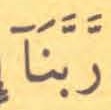 رَّبَّنَآ